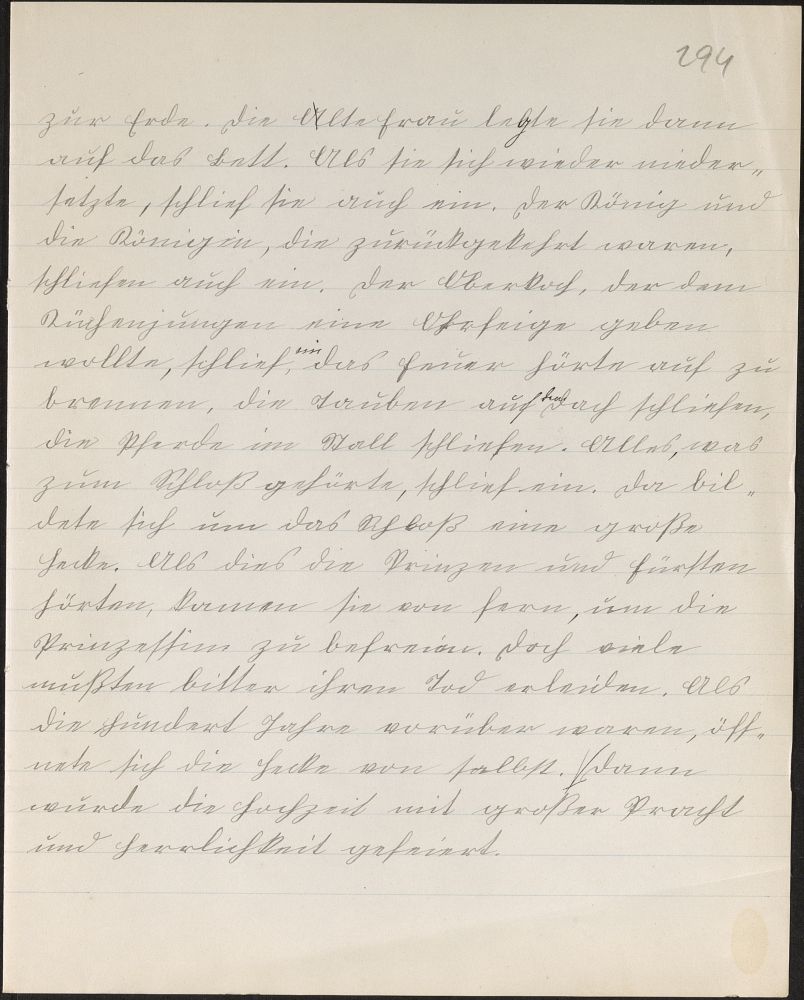 294
zur Erde. Die Alte Frau legte sie dann
auf das Bett. Als sie sich wieder nieder„
setzte, schlief sie auch ein. Der König und
die Königin, die zurückgekehrt waren,
schliefen auch ein. Der Oberkoch, der dem
Küchenjungen eine Ohrfeige geben
wollte, schlief ein, das Feuer hörte auf zu
brennen, die Tauben auf dem Dach schliefen,
die Pferde im Stall schliefen. Alles, was
zum Schloß gehörte, schlief ein. Da bil„
dete sich um das Schloß eine große
Hecke. Als dies die Prinzen und Fürsten
hörten, kamen sie von fern, um die
Prinzessinn zu befreien. Doch viele
mußten bitter ihren Tod erleiden. Als
die hundert Jahre vorüber waren, öff„
nete sich die Hecke von selbst. / Dann
wurde die Hochzeit mit großer Pracht
und Herrlichkeit gefeiert.